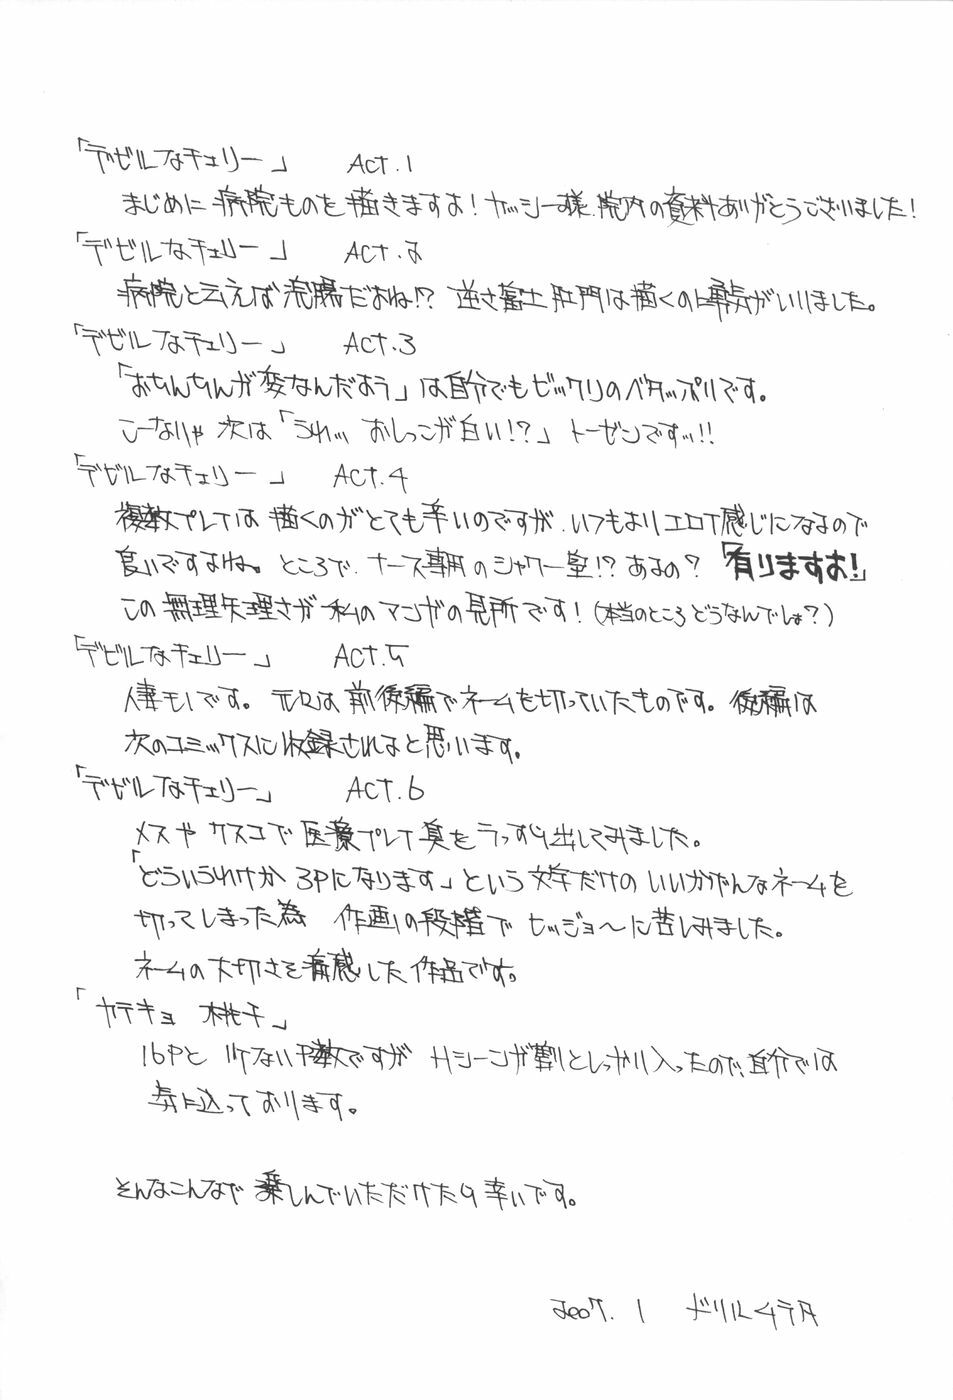 「デビルなチェリー」 Act.1
まじめに病院ものを描きますよ!ヤッシー様、院内の資料ありがとうございました!
「デビルなチェリー」 Act.2
病院と云えば浣腸だよね!?逆さ富士肛門は描くのに勇気がいりました。
「デビルなチェリー」 Act.3
「おちんちんが変なんだよう」は自分でもビックリのベタッぷりです。
こーなりゃ次は「うわッ おしっこが白い!?」トーゼンですッ!!
「デビルなチェリー」 Act.4
複数プレイは描くのがとても辛いのですが、いつもよりエロイ感じになるので
良いですよね。ところで、ナース専用のシャワー室!?あるの?「有りますよ!」
この無理矢理さが私のマンガの見所です!(本当のところどうなんでしょ?)
「デビルなチェリー」 Act.5
人妻モノです。元々は前後編でネームを切っていたものです。後編は
次のコミックスに収録されると思います。
「デビルなチェリー」 Act.6
メスやクスコで医療プレイ臭をうっすら出してみました。
「どういうわけか3Pになります」という文字だけのいいかげんなネームを
切ってしまった為 作画の段階でヒッジョ〜に苦しみました。
ネームの大切さを痛感した作品です。
「カテキョ 桃子」
16Pと少ないP数ですがHシーンが割としっかり入ったので、自分では
気に込っております。
そんなこんなで楽しんでいただけたら幸いです。
2007.1 ドリルムラタ